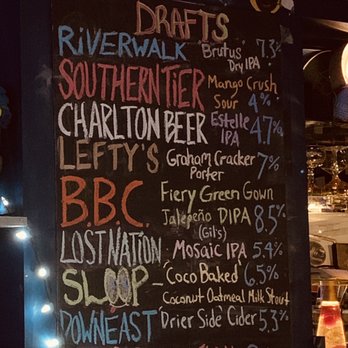 DRAFTS
RIVERWALK Brutus Dry IPA 7.3%
SOUTHERN TIER Mango Crush Sour 4%
CHARLTON BEER Estelle IPA 4.7%
LEFTY'S Graham Cracker Porter 7%
B.B.C. Fiery Green Gown
Jalepeño DIPA 8.5%
(Gil's)
LOST NATION - Mosaic IPA 5.4%
SLOOP - "Coco Baked" 6.5%
Coconut Oatmeal Milk Stout
DOWNEAST Drier Side Cider 5.3%